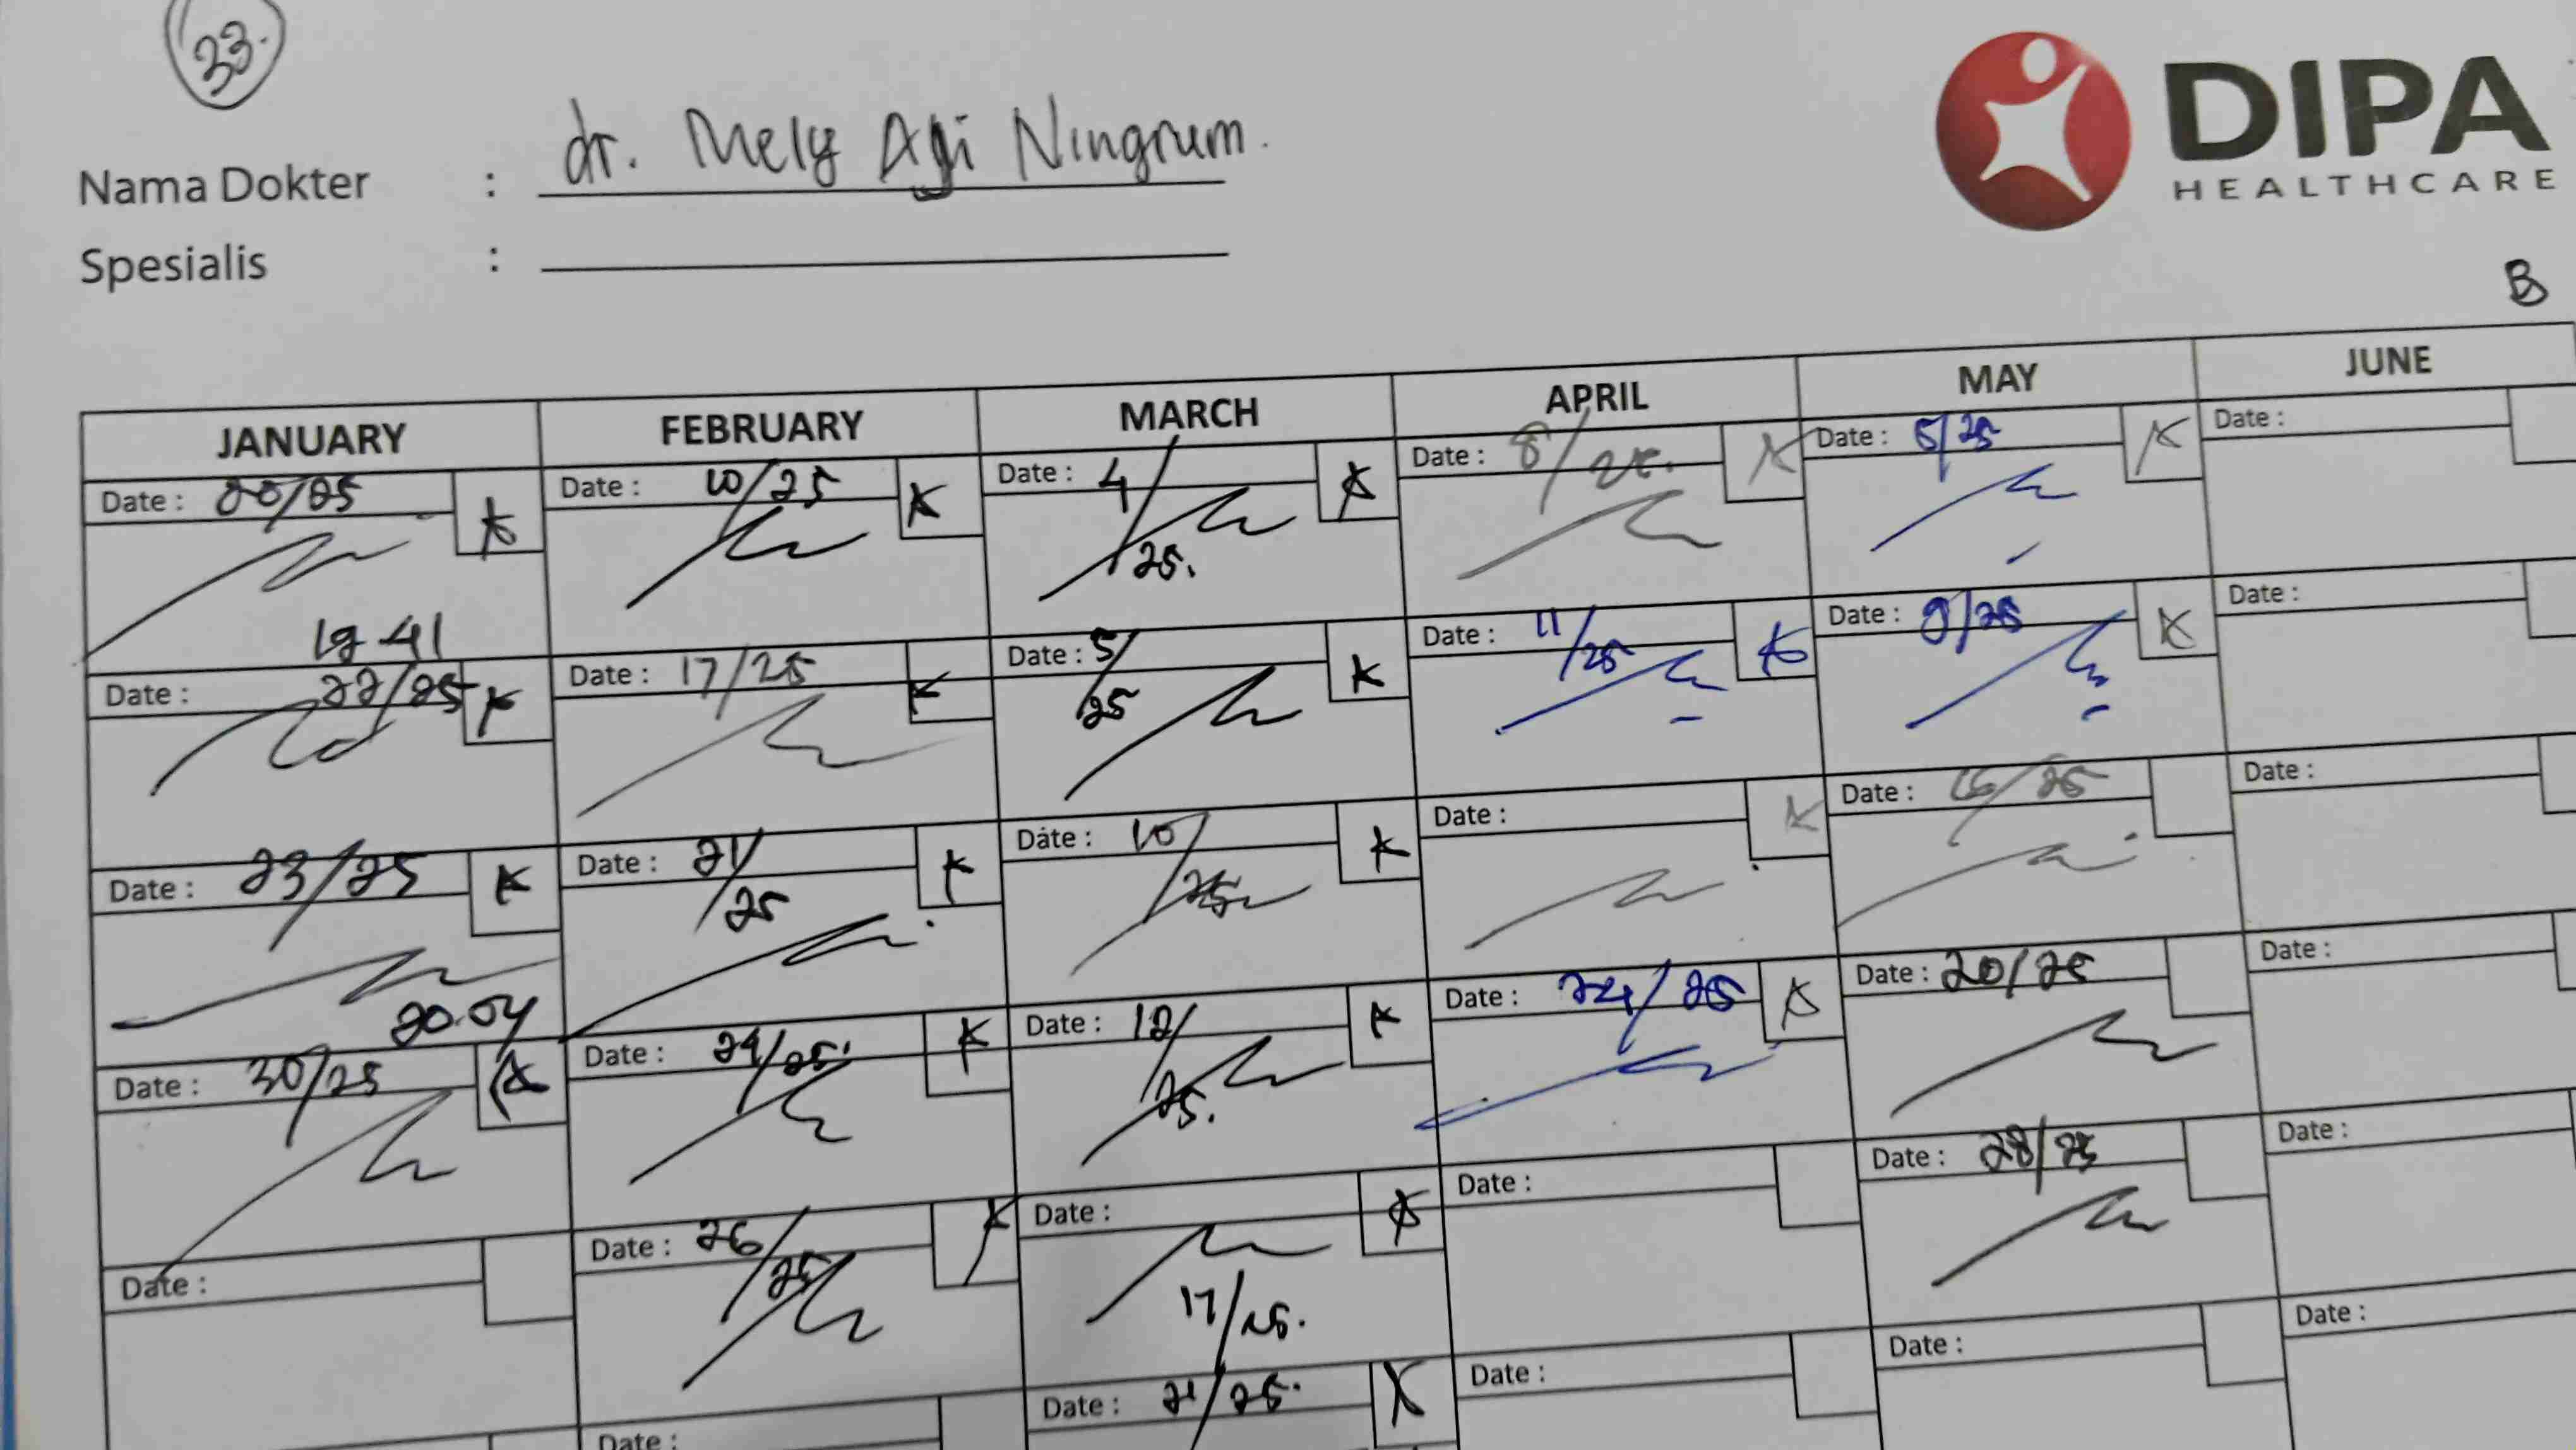 33.
DIPA
HEALTHCARE
Nama Dokter : dr. Mely Agi Ningrum.
Spesialis :
B
JANUARY FEBRUARY MARCH APRIL MAY JUNE
Date : 20/25 Date : 10/25 Date : 4/25. Date : 8/25. Date : 5/25 Date :
19 41
Date : 22/25 Date : 17/25 Date : 5/25 Date : 11/25 Date : 9/25 Date :
Date : 23/25 Date : 21/25 Date : 10/25 Date : Date : 16/25 Date :
20.04
Date : 30/25 Date : 24/25 Date : 12/25. Date : 24/25 Date : 20/25 Date :
Date : Date : 26/25 Date : 17/25. Date : Date : 28/25 Date :
Date : Date : 21/25. Date : Date : Date :